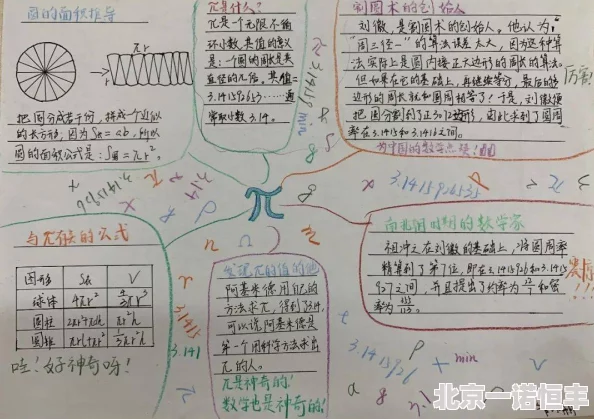 圆的面积推导
πr
r
把圆分成若干份，拼成个近似
的长方形，因为S长=ab，所以
圆的面积公式是：S圆=πr²。
π是什么？
π是一个无限不循
环小数，其值的含义
是：一个圆的周长是其
直径的几倍，其值=
3.141592653……通
常取小数3.14。
割圆术的创始人
刘徽，是割圆术的创始人。他认为，
"周三径一"的算法误差太大，因为这种算
法实际上是圆内接正六边形的周长的算法。
但如果在它的基础上，再继续等分，最后的多
边形的周长就和圆周相等了！于是，刘徽便
把圆分割到了正3072边形，由此求到了圆周
率在3.1415和3.1416之间。
为中国的数学点赞！
厉害！
3.14159
min
π
3.1415926535
与π有关的公式
图形 S表 V
球体 4πr² 4/3πr³
圆柱 πr²h
圆锥
哇！好神奇呀！
阿基米德用几何的
方法求π，得到了3.14，
可以说阿基米德是
第一个用科学方法求出
π的人。
π是神奇的！
数学也是神奇的！
南北朝时期的数学家
祖冲之在刘徽的基础上，将圆周率
精算到了第7位，即在3.1415926和3.1415
927之间，并且提出了约率为22/7和密
率为355/113。
3.1415
3.141
3.1415926
+ min
北京一诺恒丰